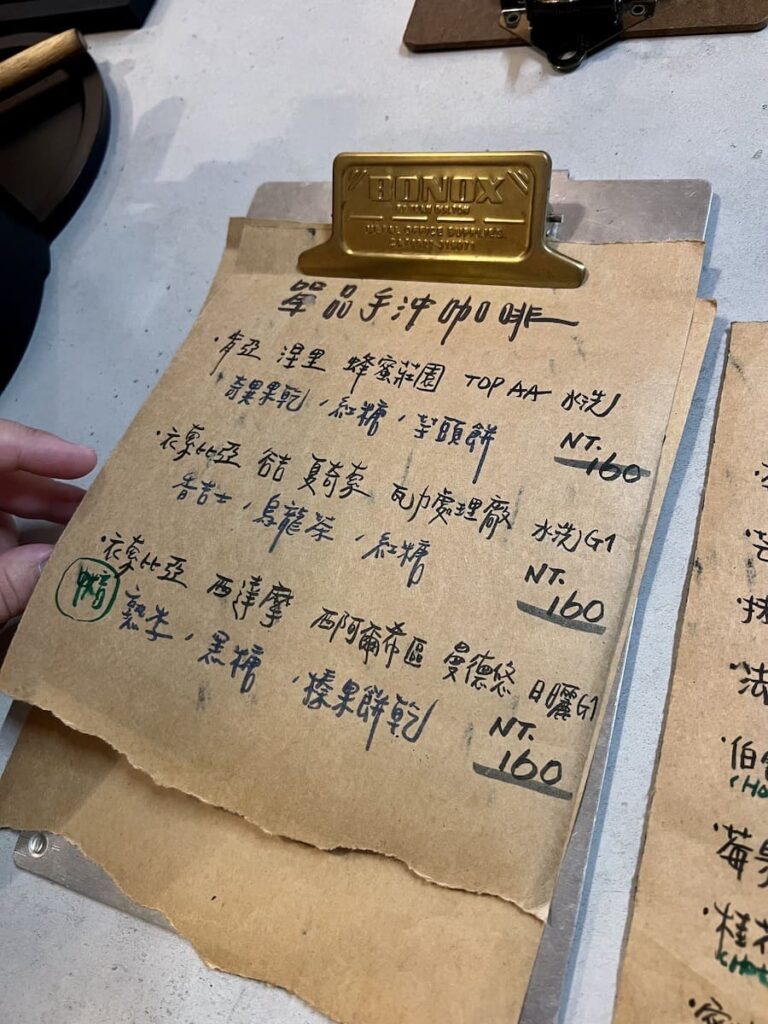 BONOX
METAL OFFICE SUPPLIES.
單品手沖咖啡
·肯亞 涅里 蜂蜜莊園 TOP AA 水洗
奇異果乾/紅糖/芋頭餅
NT.
160
·衣索比亞 谷吉 夏奇索 瓦卡處理廠 水洗G1
香吉士/烏龍茶/紅糖
NT.
160
·衣索比亞 西達摩 西阿爾希區 曼德悠 日曬G1
中焙
熟米/黑糖/榛果餅乾
NT.
160
·抹
·法
·伯
·莓果
·桂花